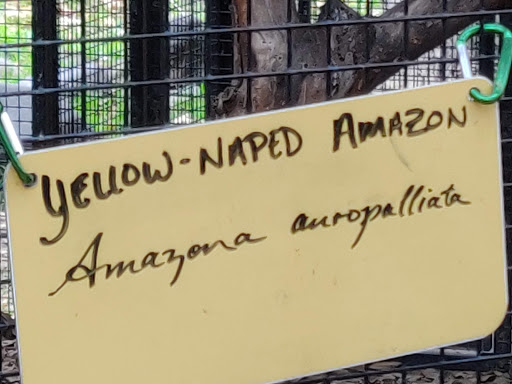 YELLOW-NAPED AMAZON
Amazona auropalliata